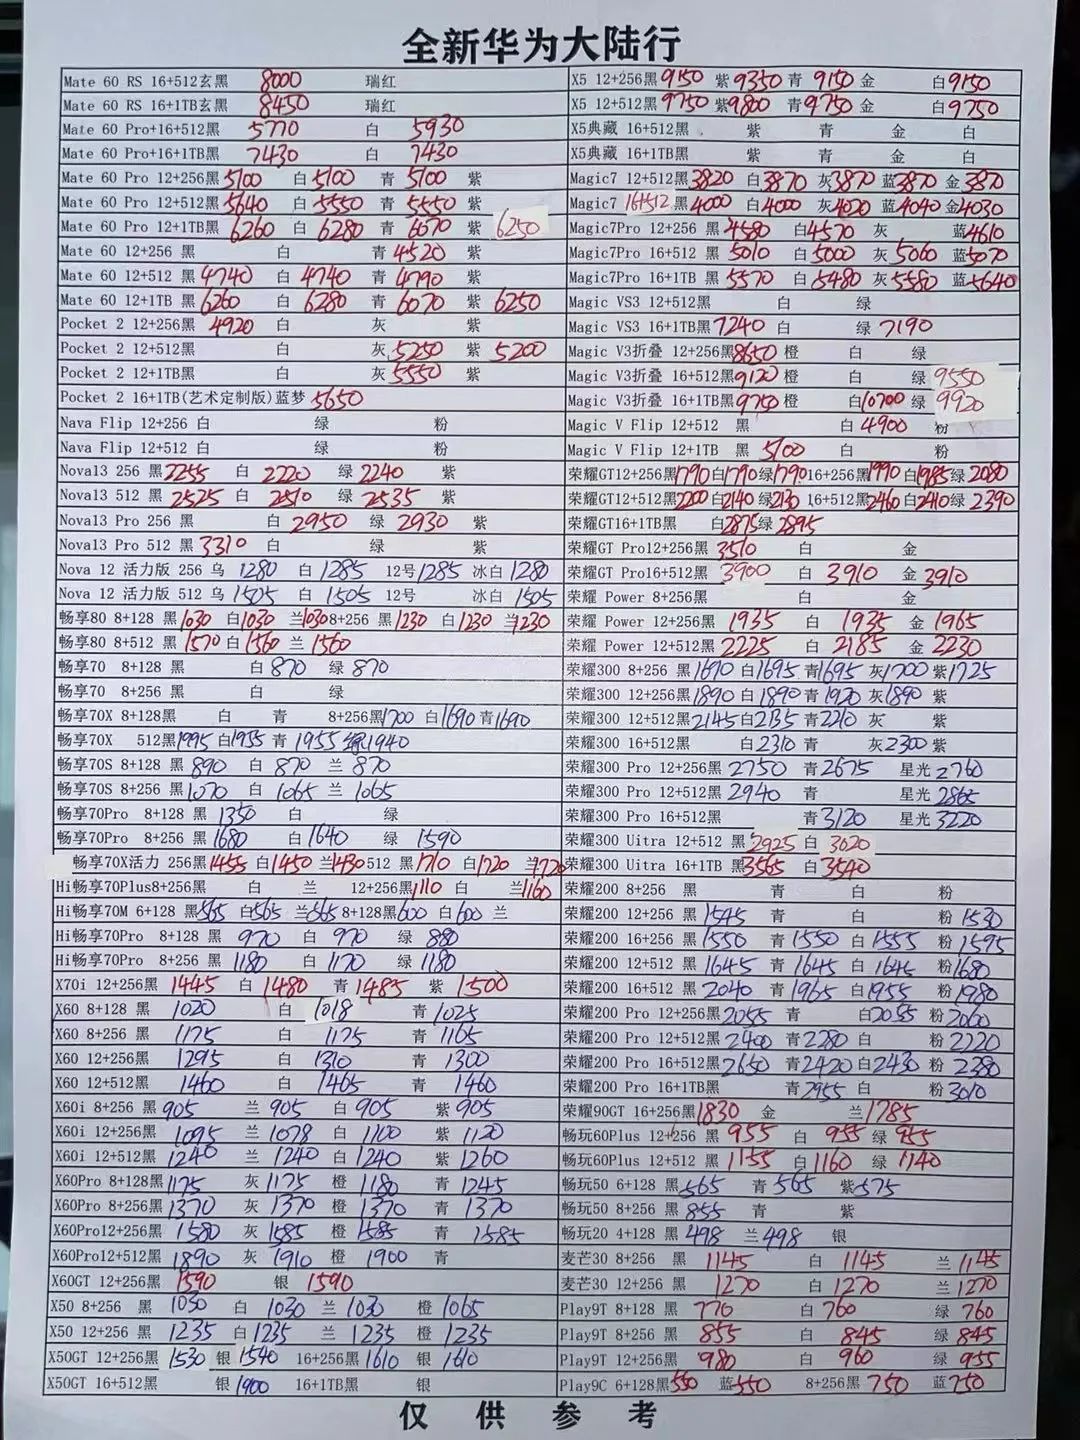 全新华为大陆行
Mate 60 RS 16+512玄黑 8000 瑞红
Mate 60 RS 16+1TB玄黑 8450 瑞红
Mate 60 Pro+16+512黑 5770 白 5930
Mate 60 Pro+16+1TB黑 7430 白 7430
Mate 60 Pro 12+256黑 5100 白 5100 青 5100 紫
Mate 60 Pro 12+512黑 5640 白 5550 青 5550 紫
Mate 60 Pro 12+1TB黑 6260 白 6280 青 6070 紫 6250
Mate 60 12+256 黑 白 青 4520 紫
Mate 60 12+512 黑 4740 白 4740 青 4790 紫
Mate 60 12+1TB 黑 6260 白 6280 青 6070 紫 6250
Pocket 2 12+256黑 4920 白 灰 紫
Pocket 2 12+512黑 白 灰 5250 紫 5200
Pocket 2 12+1TB黑 白 灰 5550 紫
Pocket 2 16+1TB(艺术定制版)蓝梦 5650
Nava Flip 12+256 白 绿 粉
Nava Flip 12+512 白 绿 粉
Nova13 256 黑 2255 白 2220 绿 2240 紫
Nova13 512 黑 2525 白 2510 绿 2535 紫
Nova13 Pro 256 黑 白 2950 绿 2930 紫
Nova13 Pro 512 黑 3310 白 绿 紫
Nova 12 活力版 256 乌 1280 白 1285 12号 1285 冰白 1280
Nova 12 活力版 512 乌 1505 白 1505 12号 冰白 1505
畅享80 8+128 黑 1030 白 1030 兰 1030 8+256 黑 1230 白 1230 兰 1230
畅享80 8+512 黑 1570 白 1560 兰 1560
畅享70 8+128 黑 白 870 绿 870
畅享70 8+256 黑 白 绿
畅享70X 8+128黑 白 青 8+256黑 1700 白 1690 青 1690
畅享70X 512黑 1995 白 1955 青 1955 1940
畅享70S 8+128 黑 890 白 870 兰 870
畅享70S 8+256 黑 1070 白 1065 兰 1065
畅享70Pro 8+128 黑 1350 白 绿
畅享70Pro 8+256 黑 1680 白 1640 绿 1590
畅享70X活力 256黑 1455 白 1450 兰 1430 512 黑 1710 白 1720 兰 1720
Hi畅享70Plus8+256黑 白 兰 12+256黑 1110 白 兰 1160
Hi畅享70M 6+128 黑 565 白 565 兰 565 8+128黑 600 白 600 兰
Hi畅享70Pro 8+128 黑 970 白 970 绿 880
Hi畅享70Pro 8+256 黑 1180 白 1170 绿 1180
X70i 12+256黑 1445 白 1480 青 1485 紫 1500
X60 8+128 黑 1020 白 1018 青 1025
X60 8+256 黑 1175 白 1175 青 1165
X60 12+256黑 1295 白 1310 青 1300
X60 12+512黑 1460 白 1465 青 1460
X60i 8+256 黑 905 兰 905 白 905 紫 905
X60i 12+256黑 1095 兰 1078 白 1100 紫 1120
X60i 12+512黑 1240 兰 1240 白 1240 紫 1260
X60Pro 8+128黑 1175 灰 1175 橙 1180 青 1245
X60Pro 8+256黑 1370 灰 1370 橙 1370 青 1370
X60Pro12+256黑 1580 灰 1585 橙 1585 青 1585
X60Pro12+512黑 1890 灰 1910 橙 1900 青
X60GT 12+256黑 1590 银 1590
X50 8+256 黑 1030 白 1030 兰 1030 橙 1065
X50 12+256 黑 1235 白 1235 兰 1235 橙 1235
X50GT 12+256黑 1530 银 1540 16+256黑 1610 银 1610
X50GT 16+512黑 银 1900 16+1TB黑 银
X5 12+256黑 9150 紫 9350 青 9150 金 白 9150
X5 12+512黑 9750 紫 9800 青 9750 金 白 9750
X5典藏 16+512黑 紫 青 金 白
X5典藏 16+1TB黑 紫 青 金 白
Magic7 12+512黑 3820 白 3870 灰 3870 蓝 3870 金 3870
Magic7 16+512 黑 4000 白 4000 灰 4020 蓝 4040 金 4030
Magic7Pro 12+256 黑 4580 白 4570 灰 蓝 4610
Magic7Pro 16+512 黑 5010 白 5000 灰 5060 蓝 5070
Magic7Pro 16+1TB 黑 5570 白 5480 灰 5580 蓝 5640
Magic VS3 12+512黑 白 绿
Magic VS3 16+1TB黑 7240 白 绿 7190
Magic V3折叠 12+256黑 8650 橙 白 绿
Magic V3折叠 16+512黑 9120 橙 白 绿 9550
Magic V3折叠 16+1TB黑 9750 橙 白 10700 绿 9920
Magic V Flip 12+512 黑 白 4900 粉
Magic V Flip 12+1TB 黑 5100 白 粉
荣耀GT12+256黑 1790 白 1790 绿 1790 16+256黑 1990 白 1985 绿 2080
荣耀GT12+512黑 2200 白 2140 绿 2130 16+512黑 2460 白 2410 绿 2390
荣耀GT16+1TB黑 白 2875 绿 2895
荣耀GT Pro12+256黑 3510 白 金
荣耀GT Pro16+512黑 3900 白 3910 金 3910
荣耀 Power 8+256黑 白 金
荣耀 Power 12+256黑 1935 白 1935 金 1965
荣耀 Power 12+512黑 2225 白 2185 金 2230
荣耀300 8+256 黑 1670 白 1695 青 1695 灰 1700 紫 1725
荣耀300 12+256黑 1890 白 1890 青 1920 灰 1890 紫
荣耀300 12+512黑 2145 白 2135 青 2210 灰 紫
荣耀300 16+512黑 白 2310 青 灰 2300 紫
荣耀300 Pro 12+256黑 2750 青 2675 星光 2760
荣耀300 Pro 12+512黑 2940 青 星光 2865
荣耀300 Pro 16+512黑 青 3120 星光 3220
荣耀300 Uitra 12+512 黑 2925 白 3020
荣耀300 Uitra 16+1TB 黑 3565 白 3540
荣耀200 8+256 黑 青 白 粉
荣耀200 12+256 黑 1545 青 白 粉 1530
荣耀200 16+256 黑 1550 青 1550 白 1555 粉 1595
荣耀200 12+512 黑 1645 青 1645 白 1645 粉 1680
荣耀200 16+512 黑 2040 青 1965 白 1955 粉 1980
荣耀200 Pro 12+256黑 2055 青 白 2055 粉 2060
荣耀200 Pro 12+512黑 2400 青 2280 白 粉 2220
荣耀200 Pro 16+512黑 2650 青 2420 白 2430 粉 2380
荣耀200 Pro 16+1TB黑 青 2955 白 粉 3010
荣耀90GT 16+256黑 1830 金 兰 1785
畅玩60Plus 12+256 黑 955 白 955 绿 955
畅玩60Plus 12+512 黑 1155 白 1160 绿 1140
畅玩50 6+128 黑 565 青 565 紫 575
畅玩50 8+256 黑 855 青 紫
畅玩20 4+128 黑 498 兰 498 银
麦芒30 8+256 黑 1145 白 1145 兰 1145
麦芒30 12+256 黑 1270 白 1270 兰 1270
Play9T 8+128 黑 770 白 760 绿 760
Play9T 8+256 黑 855 白 845 绿 845
Play9T 12+256黑 980 白 960 绿 955
Play9C 6+128黑 550 蓝 550 8+256黑 750 蓝 750
仅供参考